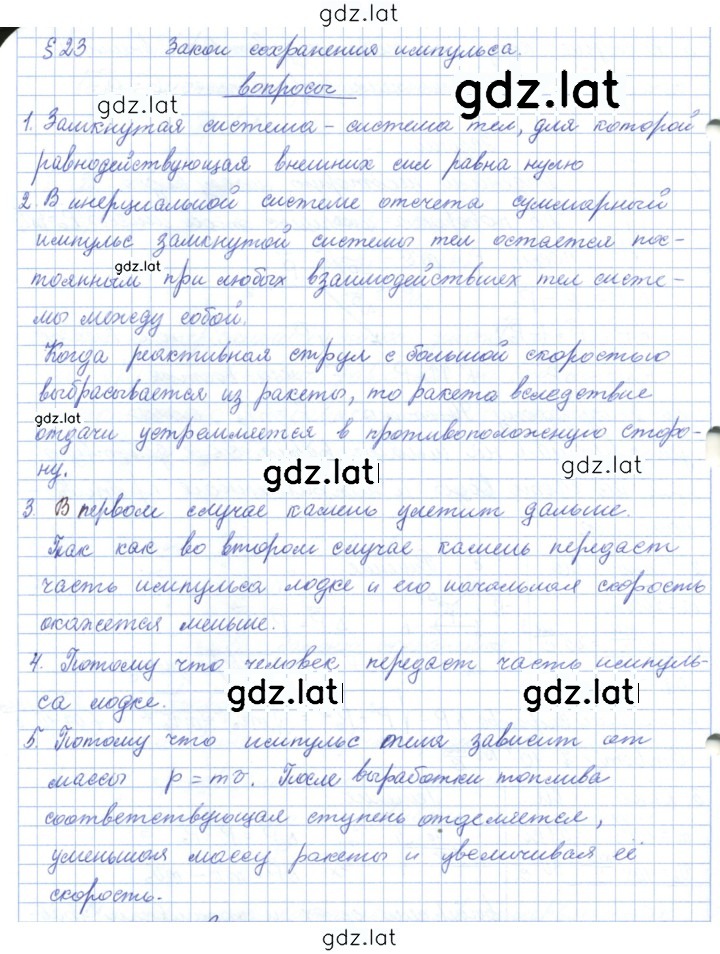 gdz.lat
§23 Закон сохранения импульса.
вопросы
gdz.lat
gdz.lat
1. Замкнутая система – система тел, для которой
равнодействующая внешних сил равна нулю
2. В инерциальной системе отсчета суммарный
импульс замкнутой системы тел остается пос-
gdz.lat
тоянным при любых взаимодействиях тел систе-
мы между собой.
Когда реактивная струл с большой скоростью
выбрасывается из ракеты, то ракета вследствие
gdz.lat
отдачи устремляется в противоположную сторо-
ну.
gdz.lat
gdz.lat
3. В первом случае камень улетит дальше.
Так как во втором случае камень передаст
часть импульса лодке и его начальная скорость
окажется меньше.
4. Потому что человек передаст часть импуль-
са лодке.
gdz.lat
gdz.lat
5. Потому что импульс тела зависит от
массы p = mv. После выработки топлива
соответствующая ступень отделяется,
уменьшая массу ракеты и увеличивая её
скорость.
gdz.lat